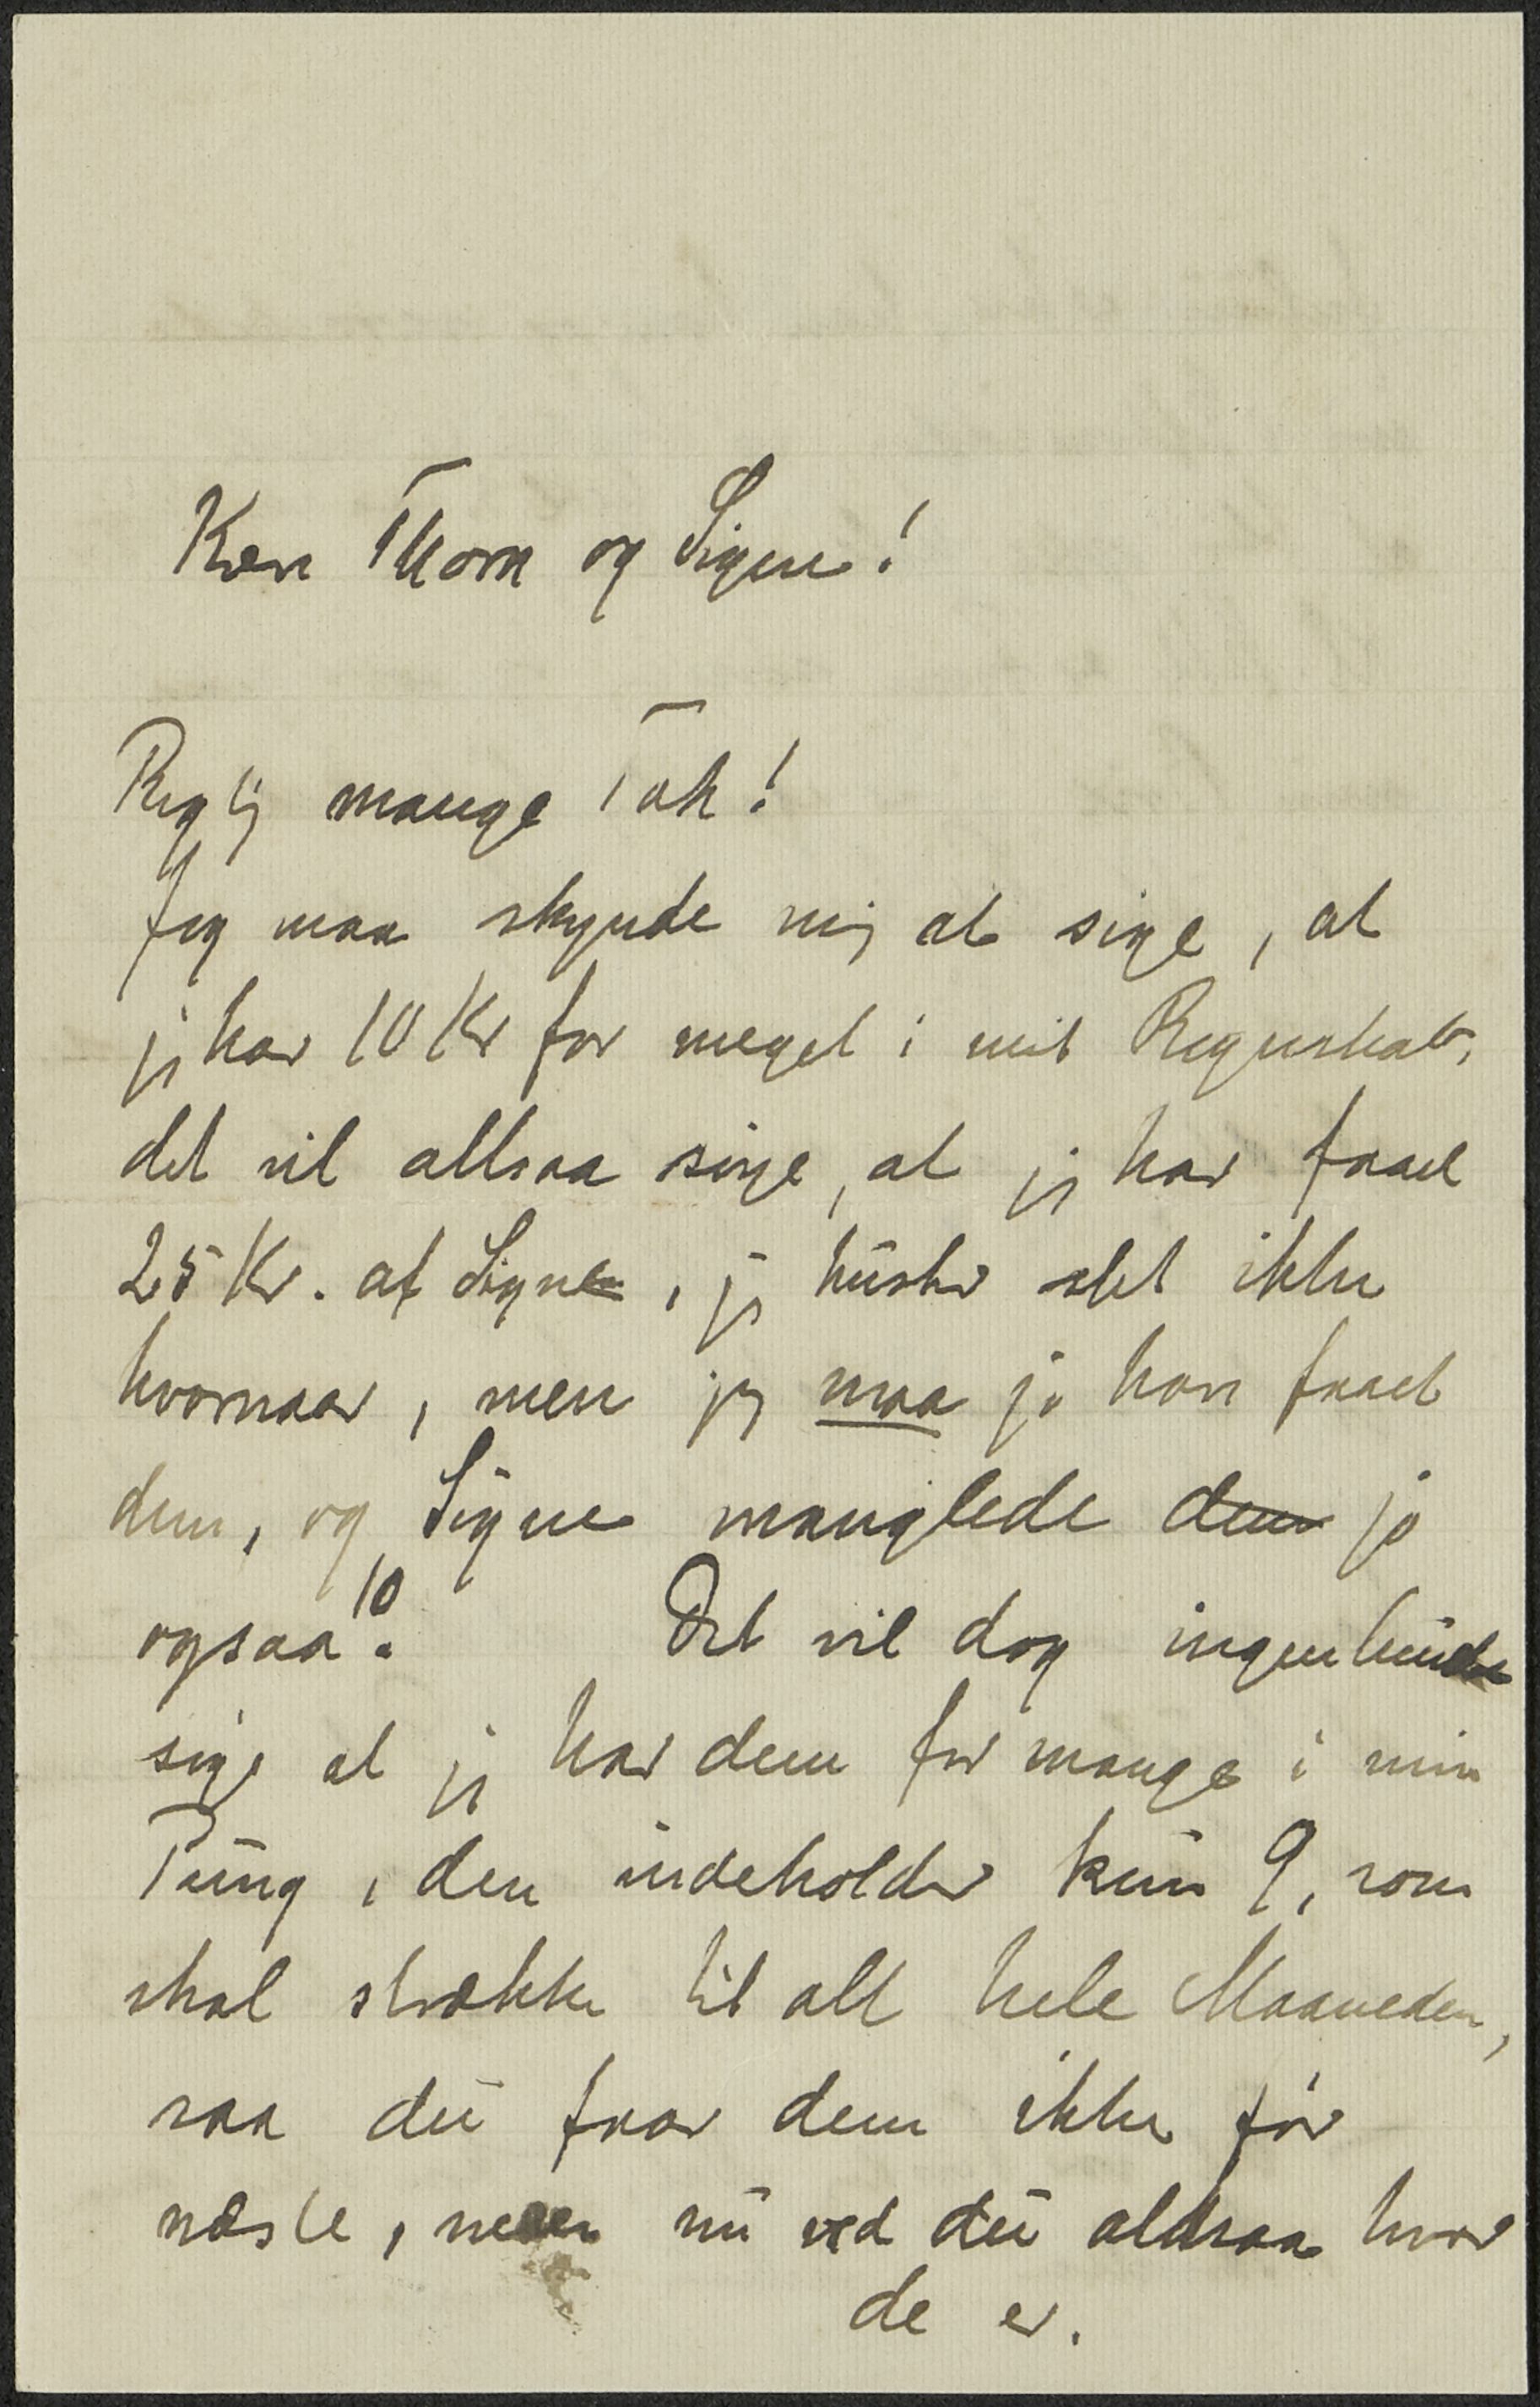 Kære Thora og Signe!
Rigtig mange Tak!
Jeg maa skynde mig at sige, at
jeg har 10 Kr for meget i mit Regnskab,
det vil altsaa sige, at jeg har faaet
25 Kr. af Signe, jeg husker slet ikke
hvornaar, men jeg maa jo have faaet
dem, og Signe manglede dem jo
ogsaa 10. Det vil dog ingenlunde
sige at jeg har dem for mange i min
Pung, den indeholder kun 9, som
skal strække til alt hele Maaneden,
saa du faar dem ikke før
næste, men nu ved du altsaa hvor
de er.